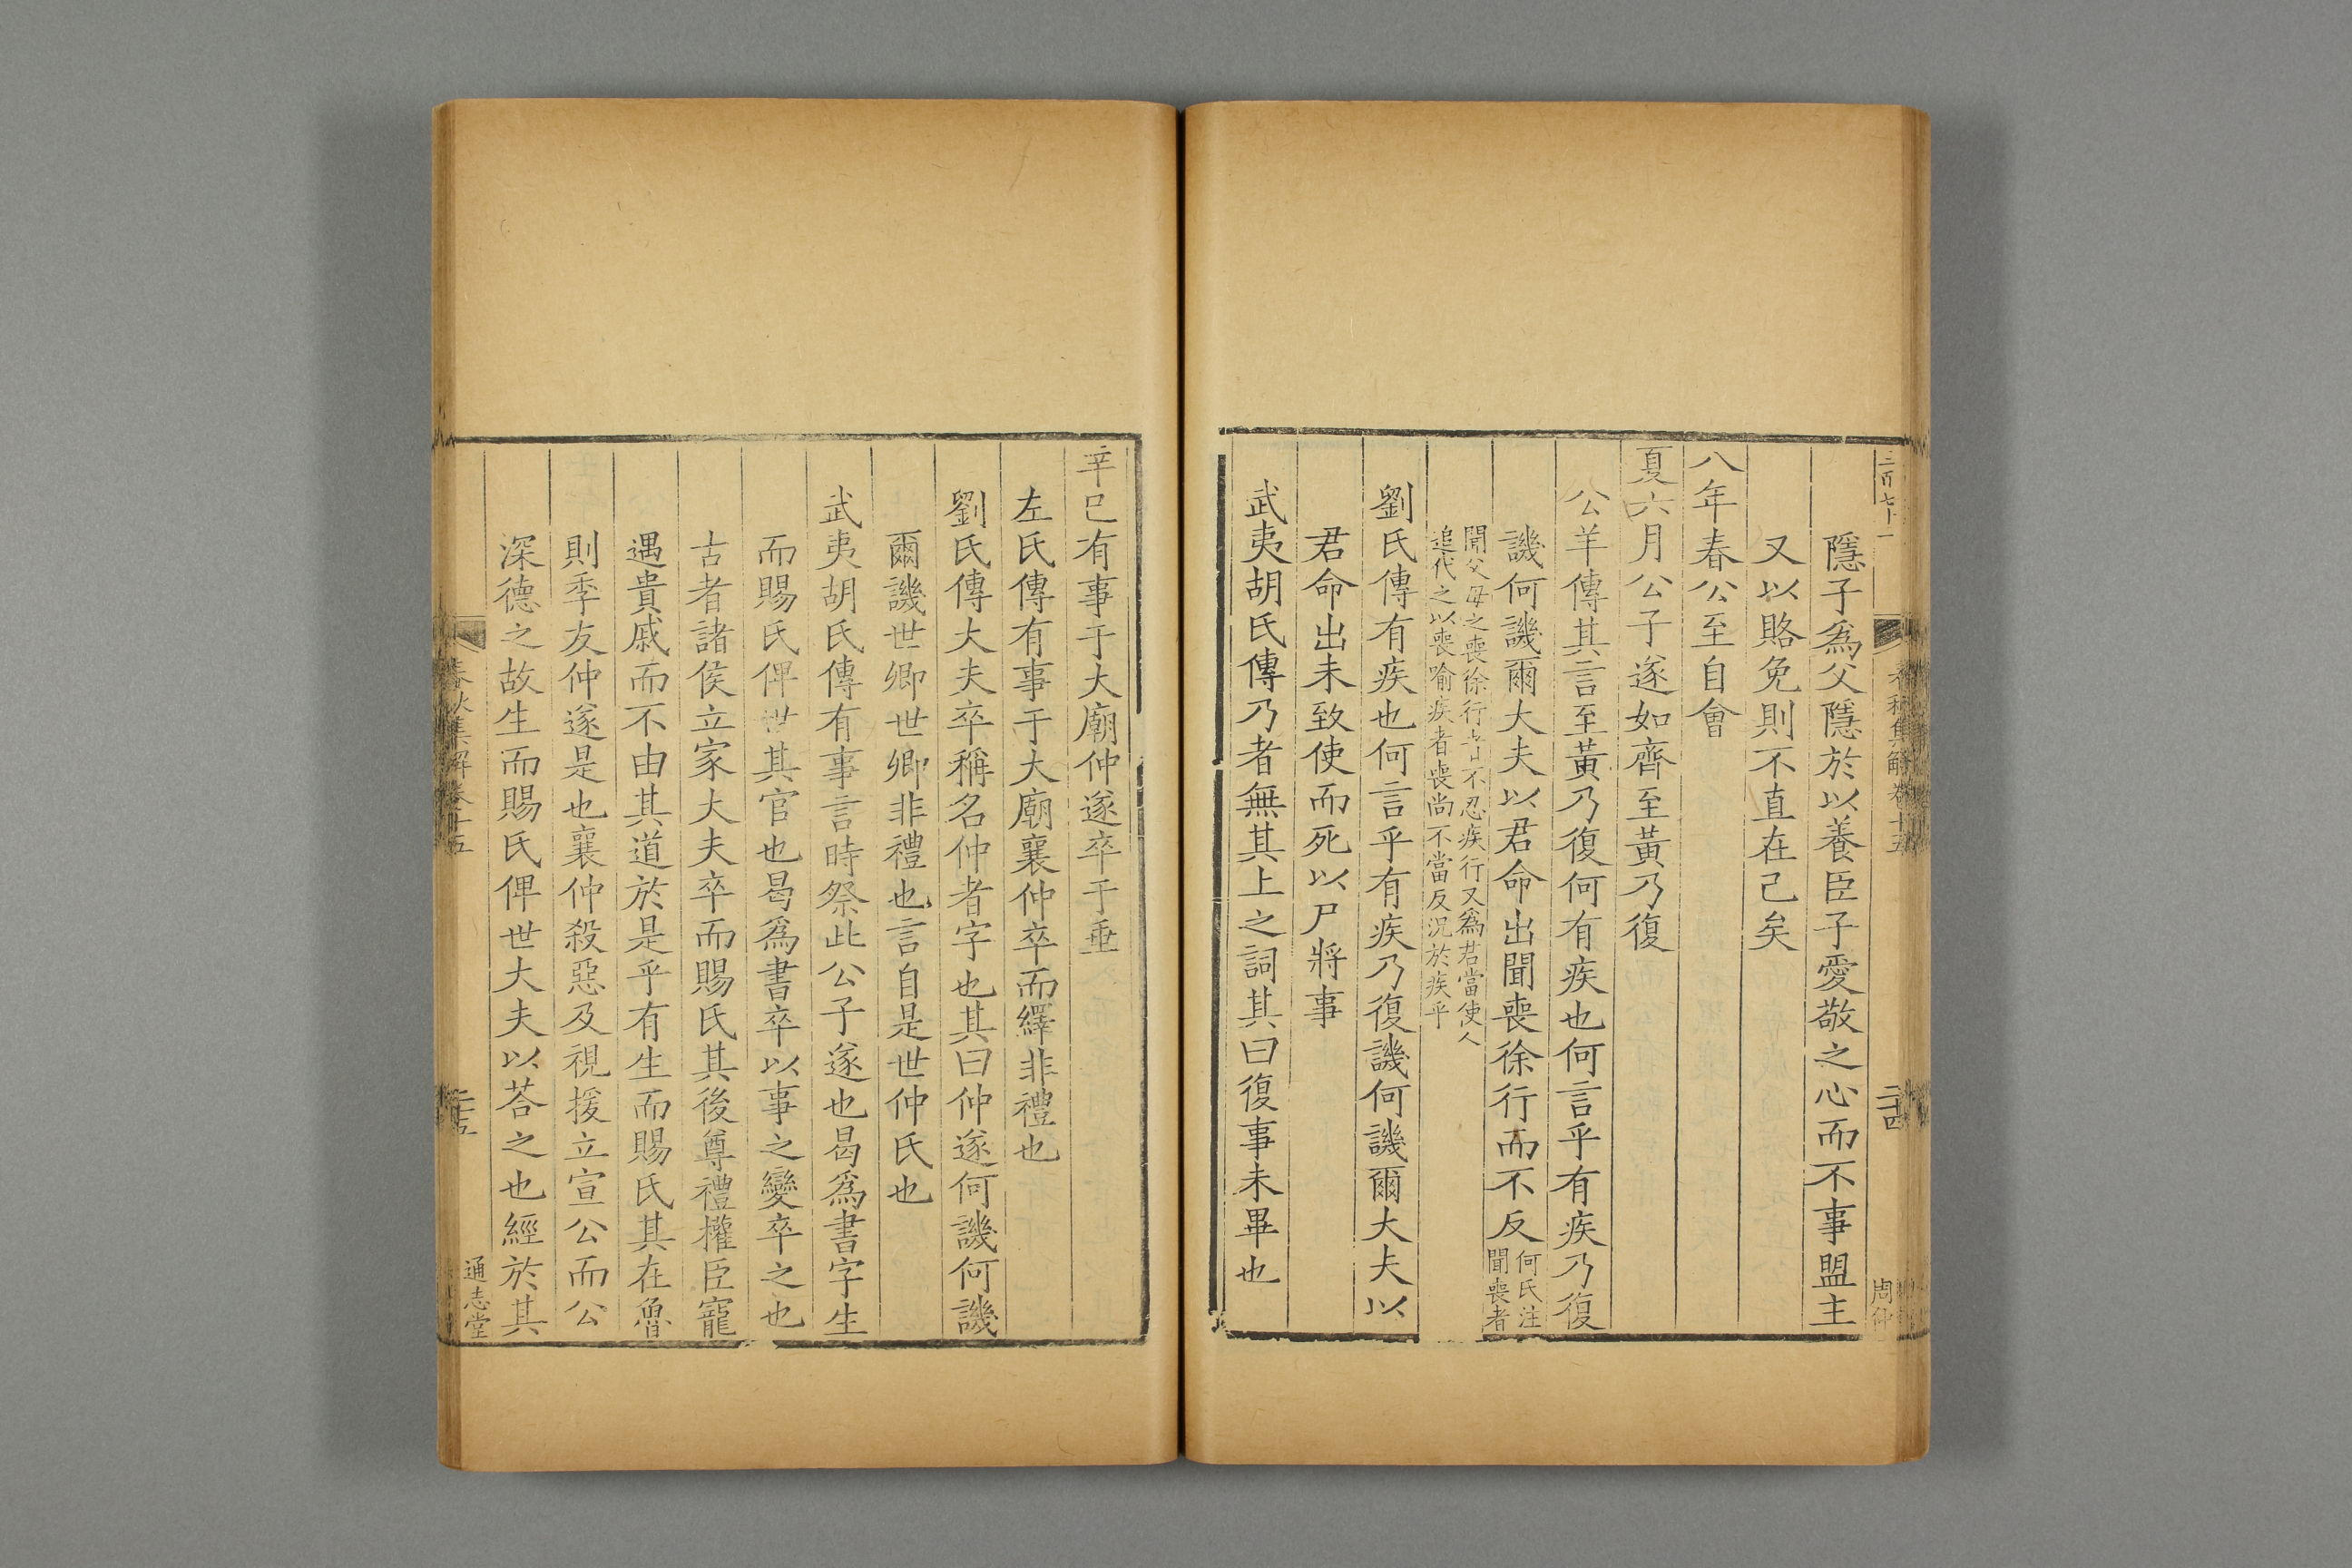 二百七十一
春秋集解卷十五
二十四
周仲
隱子爲父隱於以養臣子愛敬之心而不事盟主
又以賂免則不直在己矣
八年春公至自會
夏六月公子遂如齊至黃乃復
公羊傳其言至黃乃復何有疾也何言乎有疾乃復
譏何譏爾大夫以君命出聞喪徐行而不反何氏注聞喪者
聞父母之喪徐行者不忍疾行又爲君當使人
追代之以喪喻疾者喪尚不當反況於疾乎
劉氏傳有疾也何言乎有疾乃復譏何譏爾大夫以
君命出未致使而死以尸將事
武夷胡氏傳乃者無其上之詞其曰復事未畢也
辛巳有事于大廟仲遂卒于垂
左氏傳有事于大廟襄仲卒而繹非禮也
劉氏傳大夫卒稱名仲者字也其曰仲遂何譏何譏
爾譏世卿世卿非禮也言自是世仲氏也
武夷胡氏傳有事言時祭此公子遂也曷爲書字生
而賜氏俾世其官也曷爲書卒以事之變卒之也
古者諸侯立家大夫卒而賜氏其後尊禮權臣寵
遇貴戚而不由其道於是乎有生而賜氏其在魯
則季友仲遂是也襄仲殺惡及視援立宣公而公
深德之故生而賜氏俾世大夫以荅之也經於其
春秋集解卷十五
二十五
通志堂